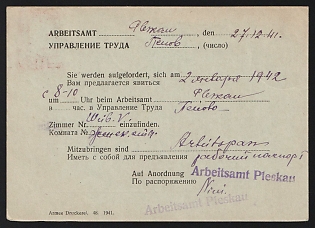 ARBEITSAMT Pleskau, den 27.12.41.
УПРАВЛЕНИЕ ТРУДА (число)
Sie werden aufgefordert, sich am 2 января 1942
Вам предлагается явиться
с 8-10
um Uhr beim Arbeitsamt Pleskau
в час. в Управление Труда
Zimmer Nr. einzufinden.
Комната №
Mitzubringen sind Arbeitspass
Иметь с собой для предъявления рабочий паспорт
Auf Anordnung Arbeitsamt Pleskau
По распоряжению
Arbeitsamt Pleskau
1941.